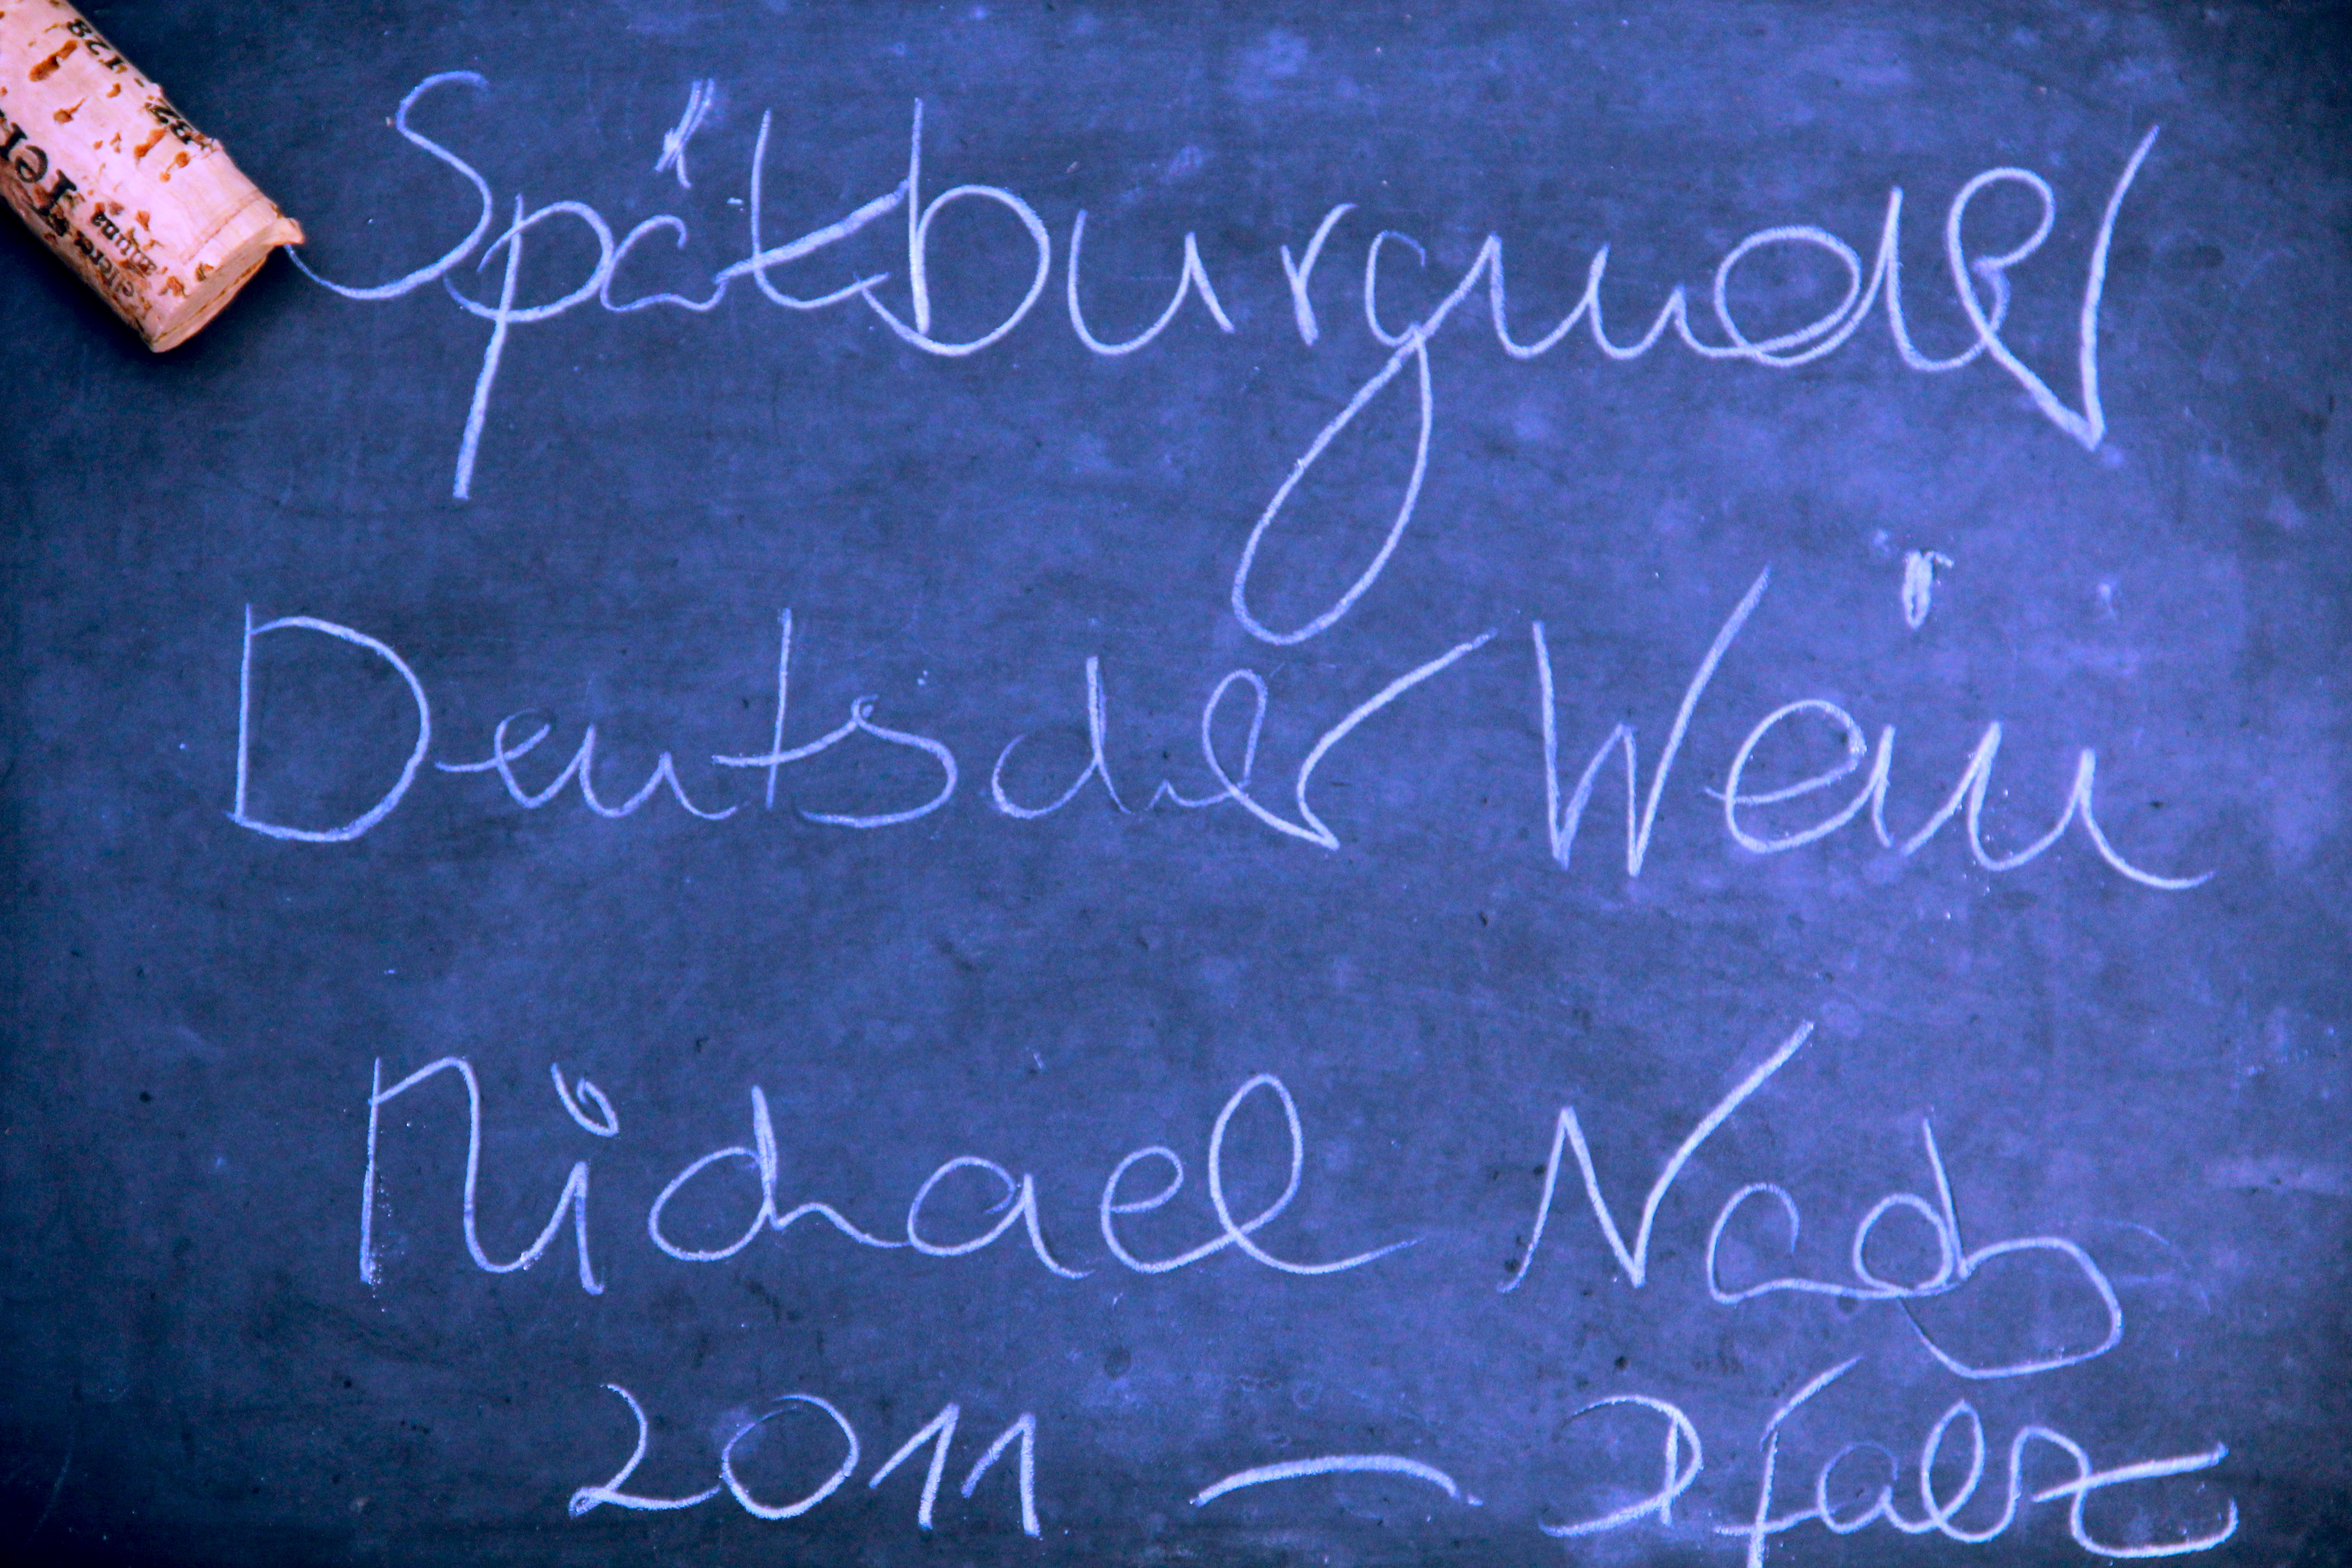 Spätburgunder
Deutscher Wein
Michael
2011 — Pfalz